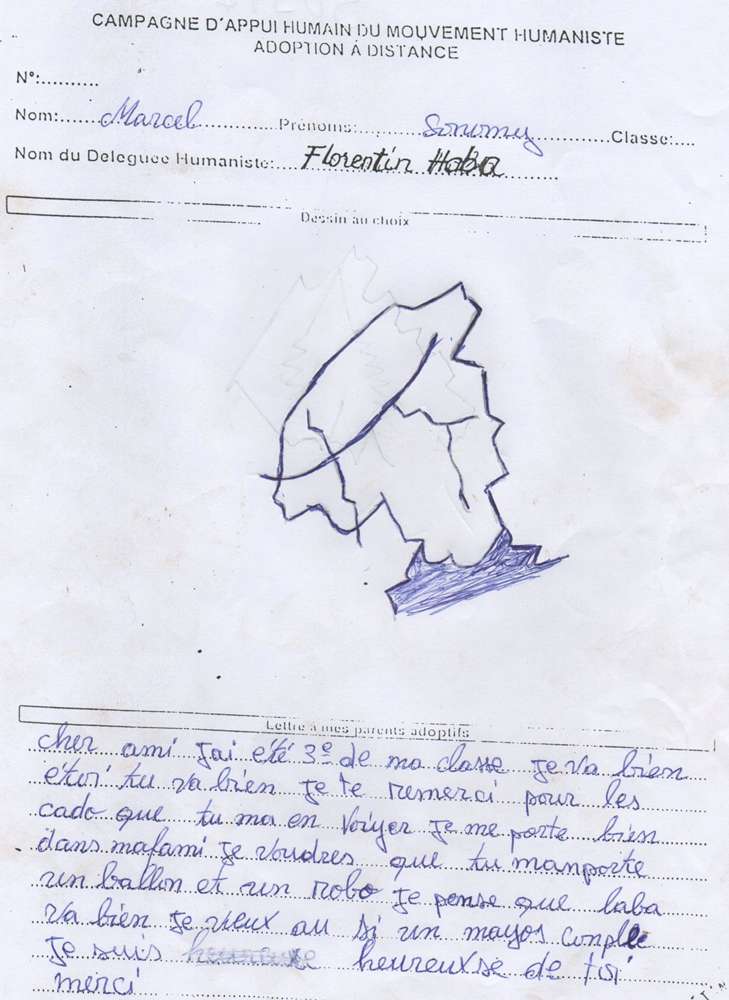 CAMPAGNE D'APPUI HUMAIN DU MOUVEMENT HUMANISTE
ADOPTION À DISTANCE
N°:..........
Nom:......Marcel..............Prénoms:......Sonomy..............Classe:....
Nom du Deleguee Humaniste:....Florentin Haba..........
Dessin au choix
Lettre à mes parents adoptifs
cher ami Jai été 3e de ma classe Je va bien
étoi tu va bien Je te remerci pour les
cado que tu ma en voiyer Je me porte bien
dans mafami Je voudres que tu manporte
un ballon et un robo Je pense que laba
va bien Je vieux au si un mayos conplle
Je suis heureuxse de toi
merci